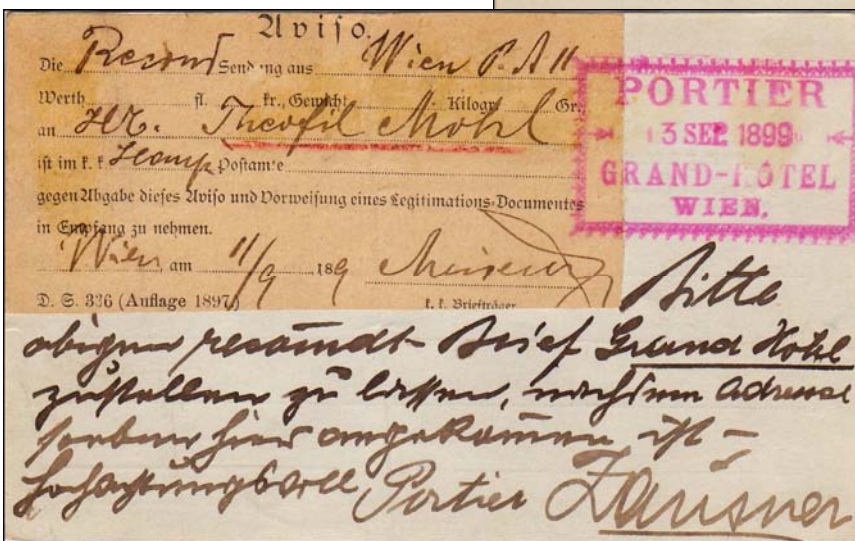 Aviso.
Die Recom Sendung aus Wien P. A 11
Werth fl. kr., Gewicht Kilogr. Gr.,
an Hr. Theofil Mohl
ist im k. k. Haupt Postamte
gegen Abgabe dieses Aviso und Vorweisung eines Legitimations-Documentes
in Empfang zu nehmen.
Wien, am 11/9 189 9
D. S. 336 (Auflage 1897.) k. k. Briefträger
PORTIER
13 SEP. 1899
GRAND-HÔTEL
WIEN.
Bitte
obigen recomdt Brief Grand Hotel
zustellen zu lassen, nachdem Adressat
soeben hier angekommen ist –
hochachtungsvoll Portier Zausner